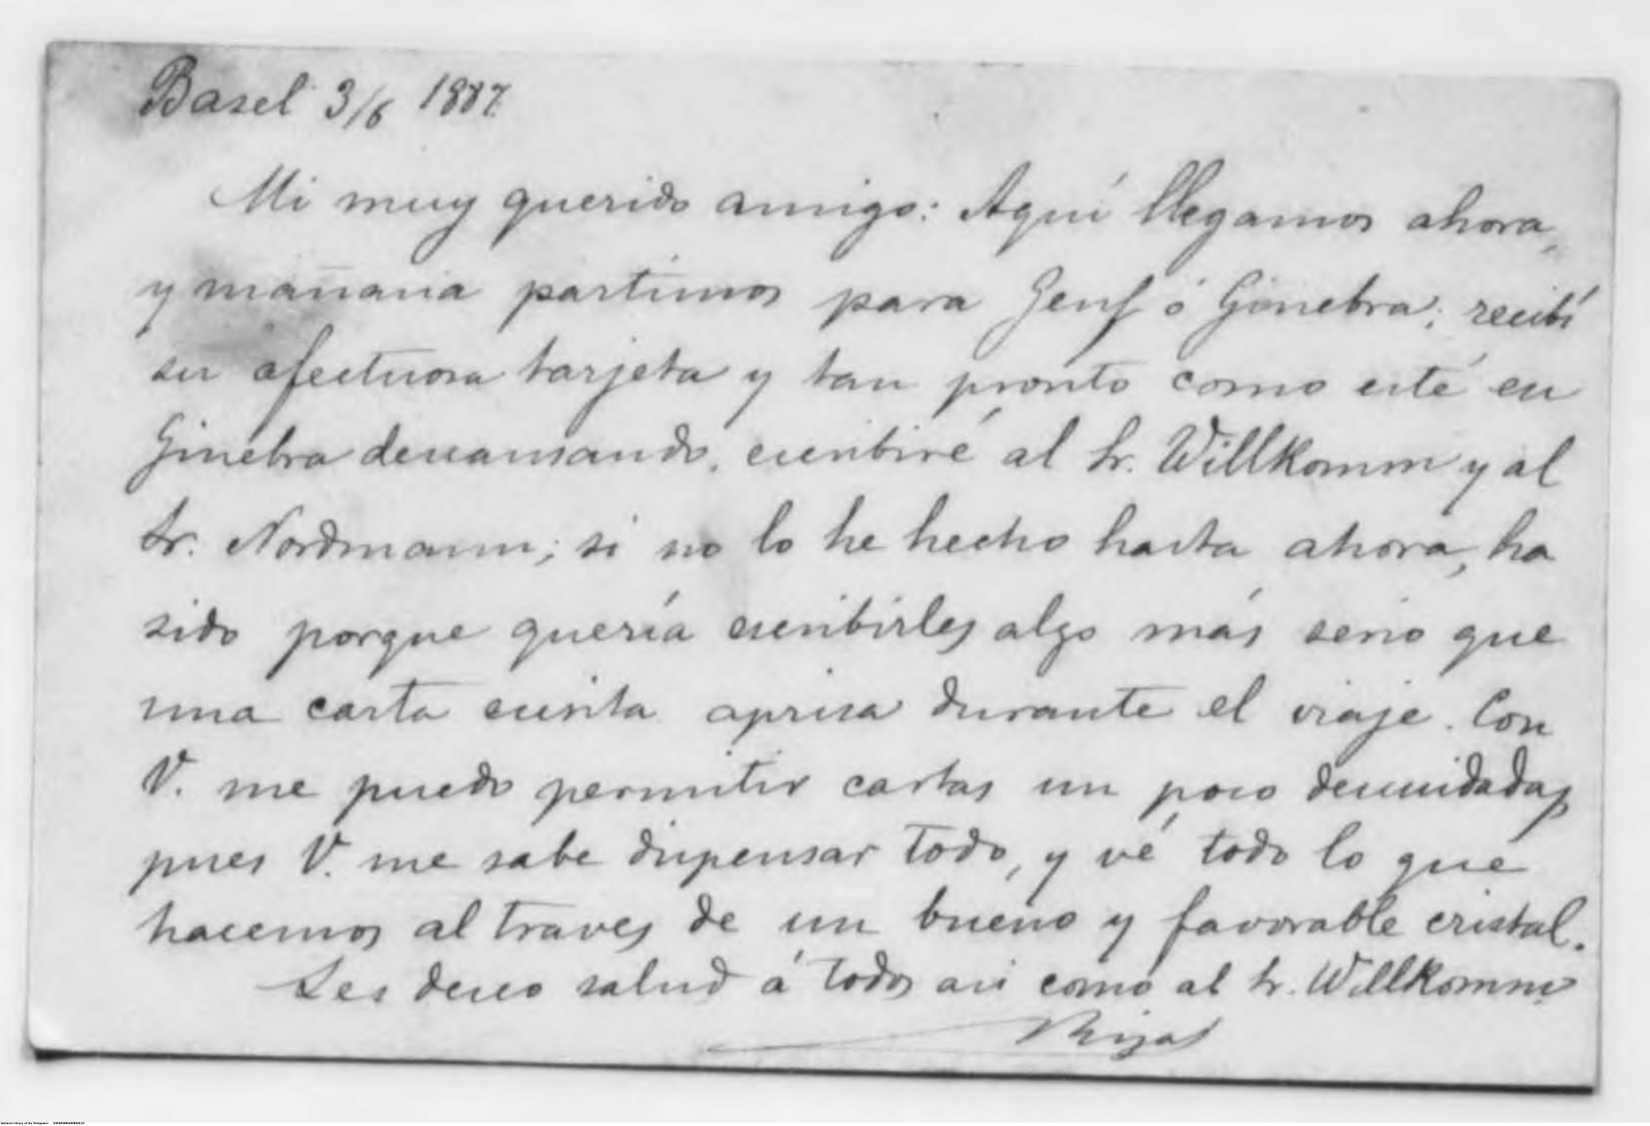 Basel 3/6 1887.
Mi muy querido amigo: Aquí llegamos ahora,
y mañana partimos para Genf ó Ginebra; recibí
su afectuosa tarjeta y tan pronto como esté en
Ginebra descansando, escribiré al Sr. Willkomm y al
Sr. Nordmann; si no lo he hecho hasta ahora, ha
sido porque quería escribirles algo más serio que
una carta escrita aprisa durante el viaje. Con
V. me puedo permitir cartas un poco descuidadas,
pues V. me sabe dispensar todo, y vé todo lo que
hacemos al traves de un bueno y favorable cristal.
Les deseo salud á todos asi como al Sr. Willkomm
Rizal